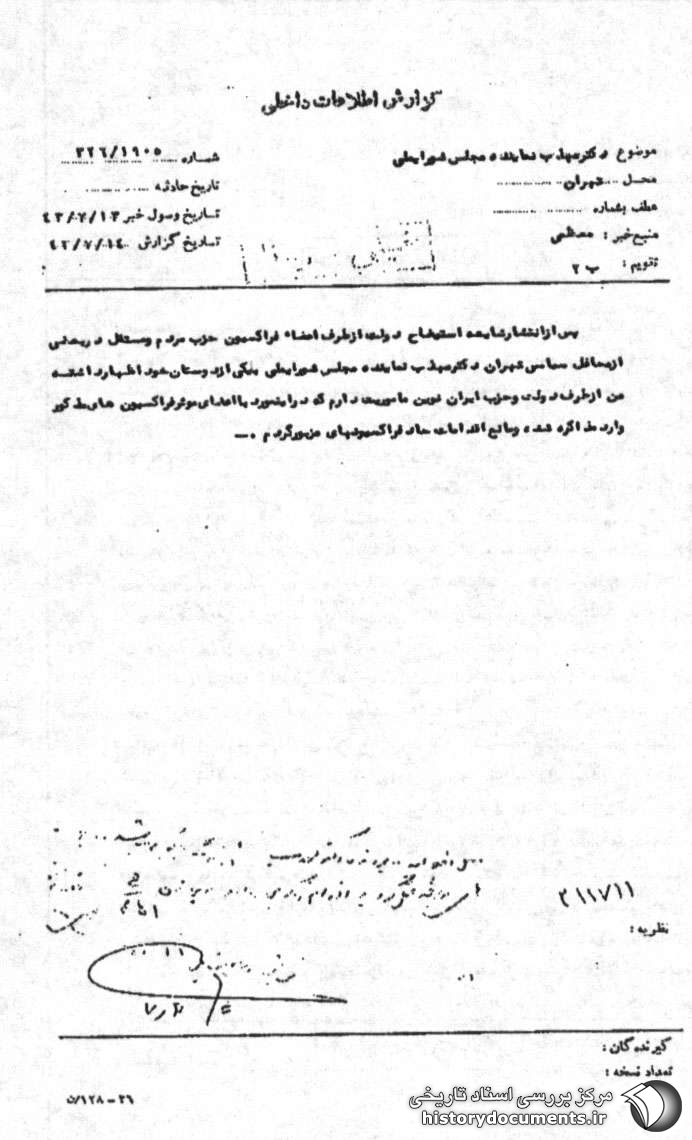 گزارش اطلاعات داخلی
موضوع دکتر مهذب نماینده مجلس شورایملی
شماره ۳۲۶/۱۹۰۵
محل تهران
تاریخ حادثه
عطف بشماره
تاریخ وصول خبر ۴۳/۷/۱۳
منبع خبر :
تاریخ گزارش ۴۳/۷/۱۴
تقویم : ب ۲
پس از انتشار شایعه استیضاح دولت از طرف اعضاء فراکسیون حزب مردم و مستقل در بعضی
از محافل سیاسی تهران دکتر مهذب نماینده مجلس شورایملی بیکی از دوستان خود اظهار داشته
من از طرف دولت و حزب ایران نوین ماموریت دارم که در اینمورد با اعضای موثر فراکسیون های مذکور
وارد مذاکره شده و مانع اقدامات حاد فراکسیونهای مزبور گردم . ـــ
۲۱۱۷۱۱
نظریه :
گیرندگان :
تعداد نسخه :
۳۶ - ۱۲۸/ن
مرکز بررسی اسناد تاریخی
historydocuments.ir